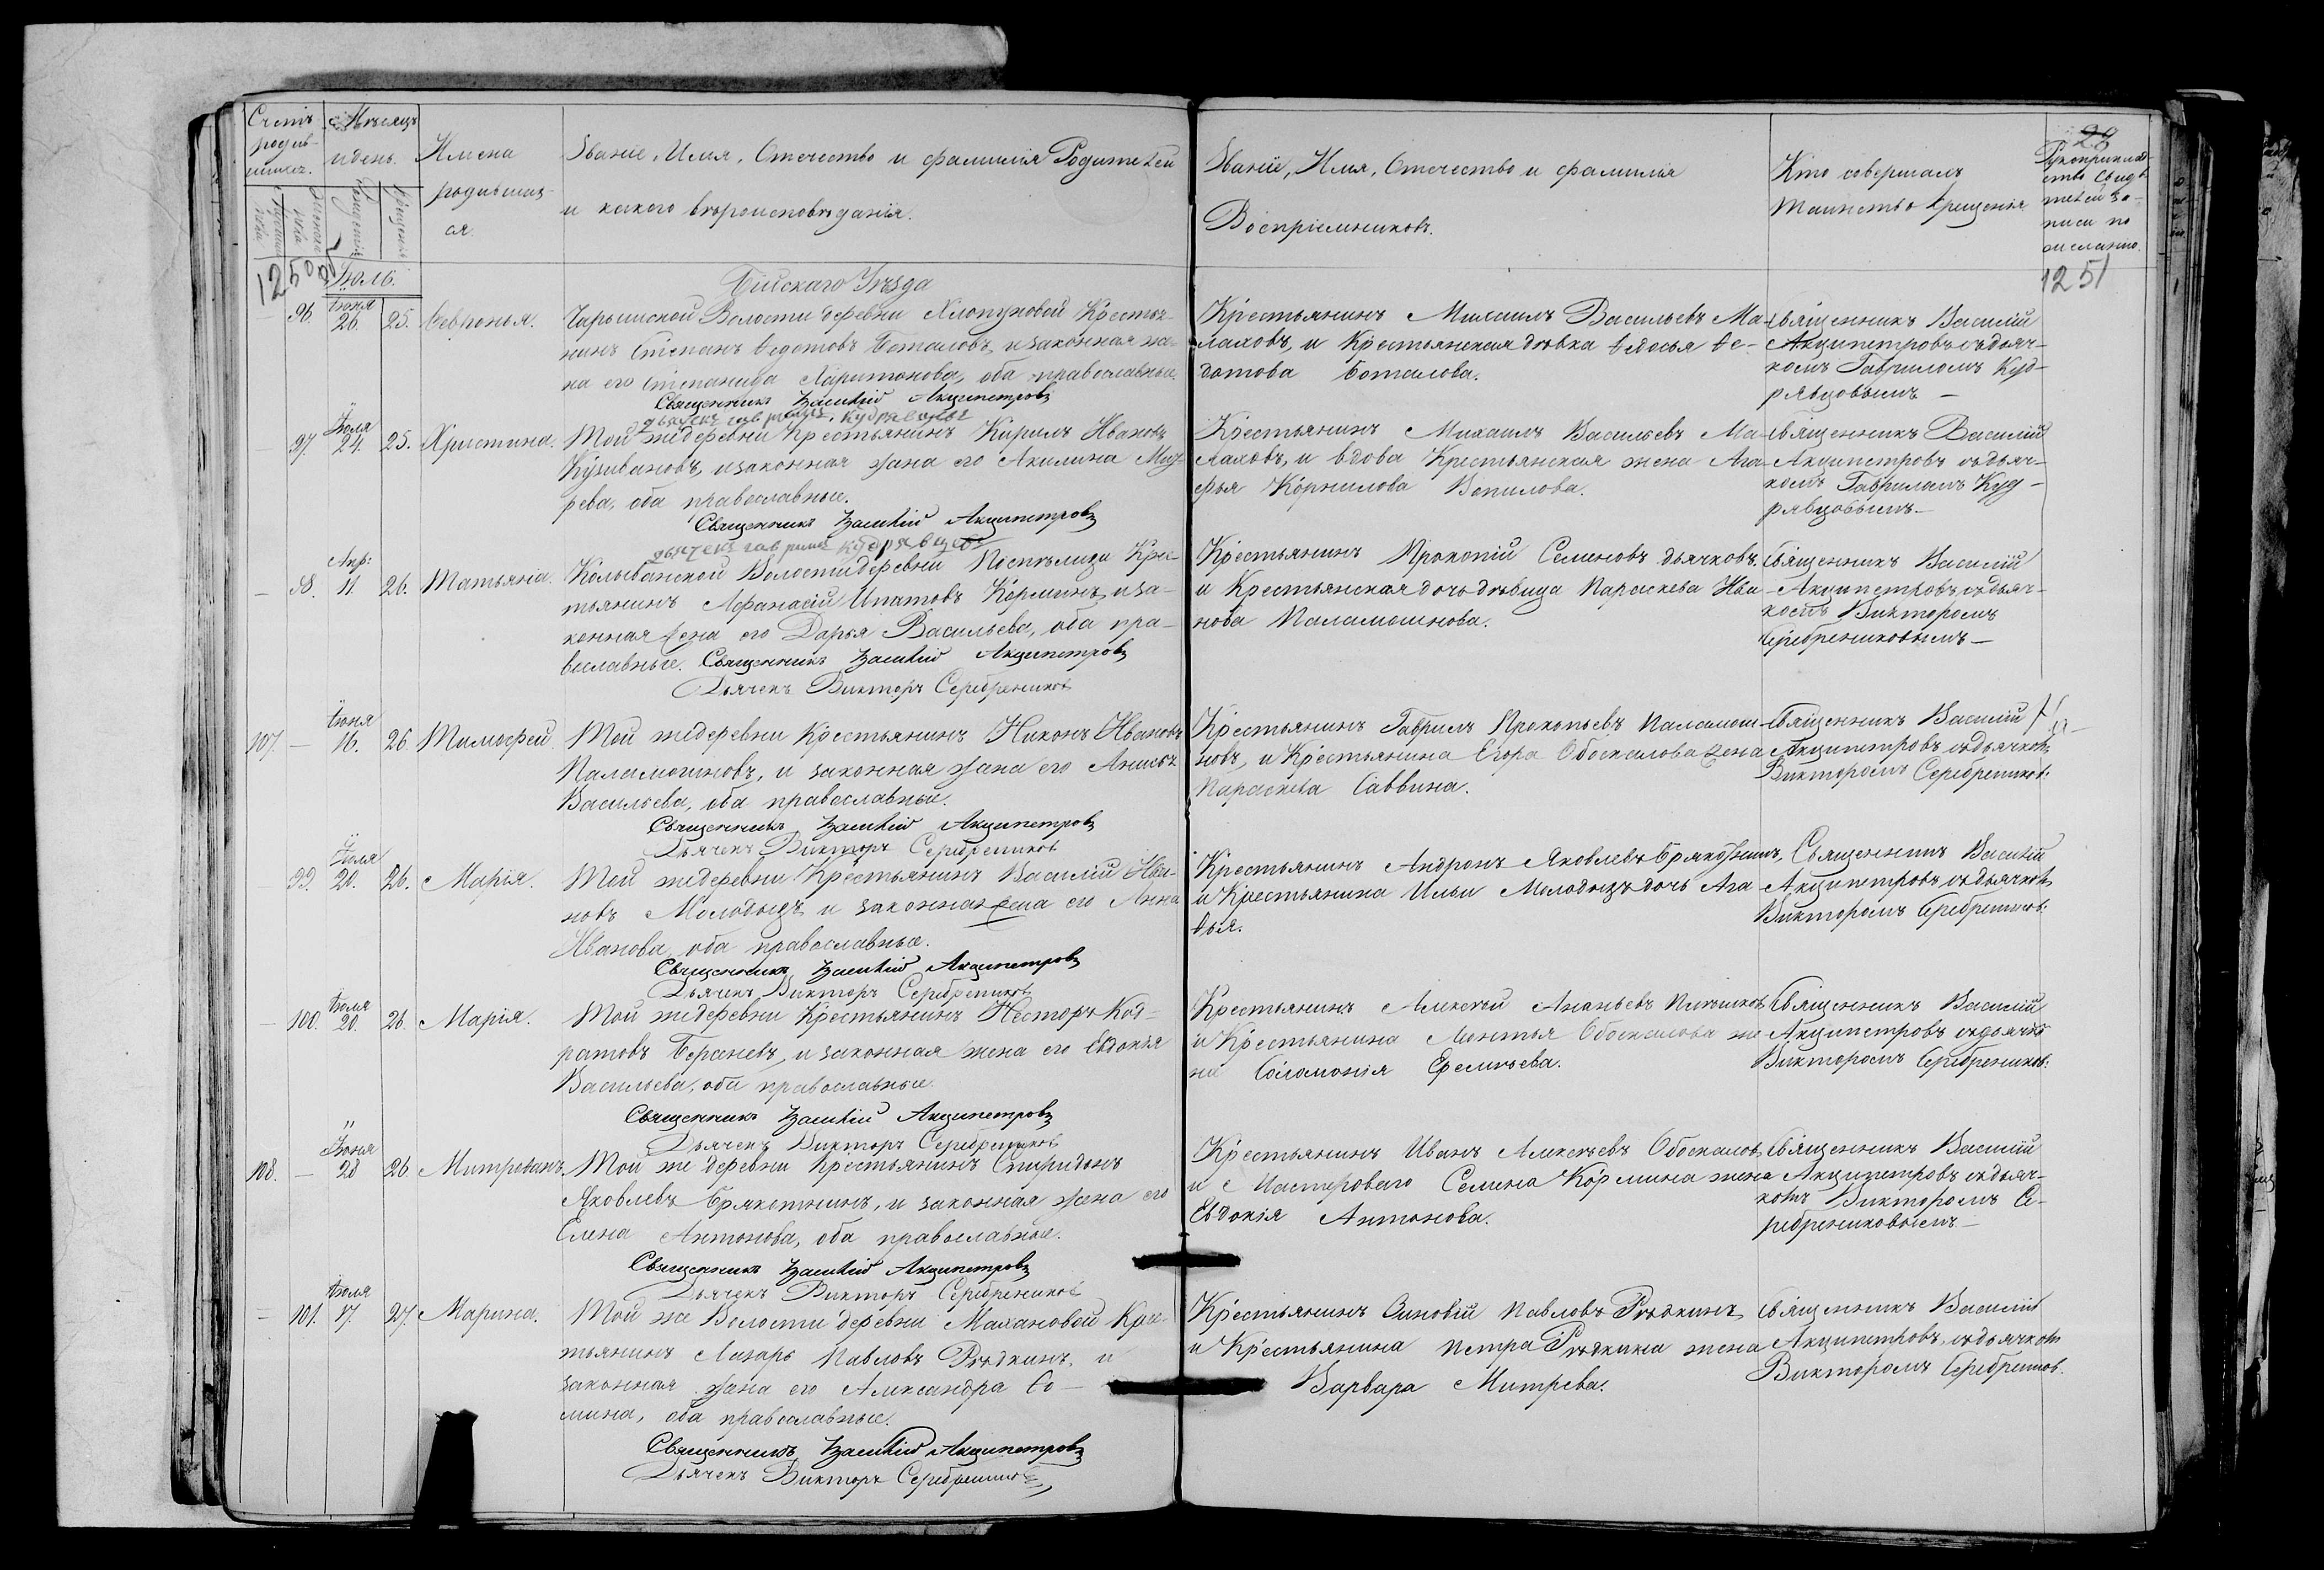 Счетъ родив-шихся.
Мѣсяцъ и день.
Имена родившихся.
Званіе, Имя, Отечество и фамилія Родителей
и какого вѣроисповѣданія.
Званіе, Имя, Отечество и фамилія
Воспріемниковъ.
Кто совершалъ
таинство крещенія
29
Рукоприклад-
ство свидѣ-
телей за-
писи по
желанію.
1250об
1251
Іюль.
Бійскаго Уѣзда
96. Іюня 26. 25. Февронья.
Чарышской Волости деревни Хлопуновой Крестья-
нинъ Степанъ Федотовъ Боталовъ, и законная же-
на его Степанида Харитонова, оба православные.
Священникъ Василій Акципетровъ
дьячекъ гаврилъ кудрявцевъ
Крестьянинъ Михаилъ Васильевъ Ма-
лаховъ, и Крестьянская дѣвка Федосья Фе-
дотова Боталова.
Священникъ Василій
Акципетровъ съ дьяч-
комъ Гавриломъ Куд-
рявцовымъ –
— 97. Іюля 24. 25. Христина.
Той же деревни Крестьянинъ Кирилъ Ивановъ
Кузивановъ, и законная жена его Акилина
рева, оба православные.
Священникъ Василій Акципетровъ
дьячекъ гаврилъ кудрявцевъ
Крестьянинъ Михаилъ Васильевъ Ма-
лаховъ, и вдова Крестьянская жена Ага-
фья Корнилова Вопилова.
Священникъ Василій
Акципетровъ съ дьяч-
комъ Гавриломъ Куд-
рявцовымъ –
— 98. Апр: 11. 26. Татьяна.
Колыванской Волости деревни Поспѣлиза Крес-
тьянинъ Афанасій Ипатовъ Корминъ, и за-
конная жена его Дарья Васильева, оба пра-
вославные. Священникъ Василій Акципетровъ
Дьячекъ Викторъ Серебрениковъ
Крестьянинъ Прокопій Семеновъ Дьячковъ,
и Крестьянская дочь дѣвица Параскева Ива-
нова Паламошнова.
Священникъ Василій
Акципетровъ съ дьяч-
комъ Викторомъ
Серебрениковымъ –
107. — Іюня 16. 26. Тимофей.
Той же деревни Крестьянинъ Никонъ Ивановъ
Паламошновъ, и законная жена его Анисья
Васильева, оба православные.
Священникъ Василій Акципетровъ
Дьячекъ Викторъ Серебрениковъ
Крестьянинъ Гаврилъ Прокопьевъ Паламош-
новъ, и Крестьянина Егора Обоскалова жена
Параскева Саввина.
Священникъ Василій
Акципетровъ съ дьячком
Викторомъ Серебреников:
99. Іюля 20. 26. Марія.
Той же деревни Крестьянинъ Василій Ива-
новъ Молодыхъ, и законная жена его Анна
Иванова, оба православные.
Священникъ Василій Акципетровъ
Дьячекъ Викторъ Серебрениковъ
Крестьянинъ Андронъ Яковлевъ Брякотнинъ,
и Крестьянина Ильи Молодыхъ дочь Ага-
фья.
Священникъ Василій
Акципетровъ съ дьячком
Викторомъ Серебреников:
— 100. Іюля 20. 26. Марія.
Той же деревни Крестьянинъ Несторъ Код-
ратовъ Бераневъ, и законная жена его Евдокія
Васильева, оба православные.
Священникъ Василій Акципетровъ
Дьячекъ Викторъ Серебрениковъ
Крестьянинъ Алексѣй Ананьевъ
и Крестьянина Леонтья Обоскалова же-
на Соломонія Ефемьева.
Священникъ Василій
Акципетровъ съ дьячко
Викторомъ Серебреников:
108. — Іюня 28 26. Митрофанъ
Той же деревни Крестьянинъ Спиридонъ
Яковлевъ Брякотнинъ, и законная жена его
Елена Антонова, оба православные.
Священникъ Василій Акципетровъ
Дьячекъ Викторъ Серебрениковъ
Крестьянинъ Иванъ Алексѣевъ Обоскаловъ
и Мастероваго Семена Кормина жена
Евдокія Антонова.
Священникъ Василій
Акципетровъ съ дьяч-
комъ Викторомъ Се-
ребрениковымъ –
— 101. Іюля 17. 27. Марина.
Той же Волости деревни Махановой Крес-
тьянинъ Лазарь Павловъ Рѣдкинъ, и
законная жена его Александра Фо-
мина, оба православные.
Священникъ Василій Акципетровъ
Дьячекъ Викторъ Серебрениковъ
Крестьянинъ Зиновій Павловъ Рѣдкинъ,
и Крестьянина Петра Рѣдкина жена
Варвара Митрева.
Священникъ Василій
Акципетровъ съ дьячком
Викторомъ Серебреников.